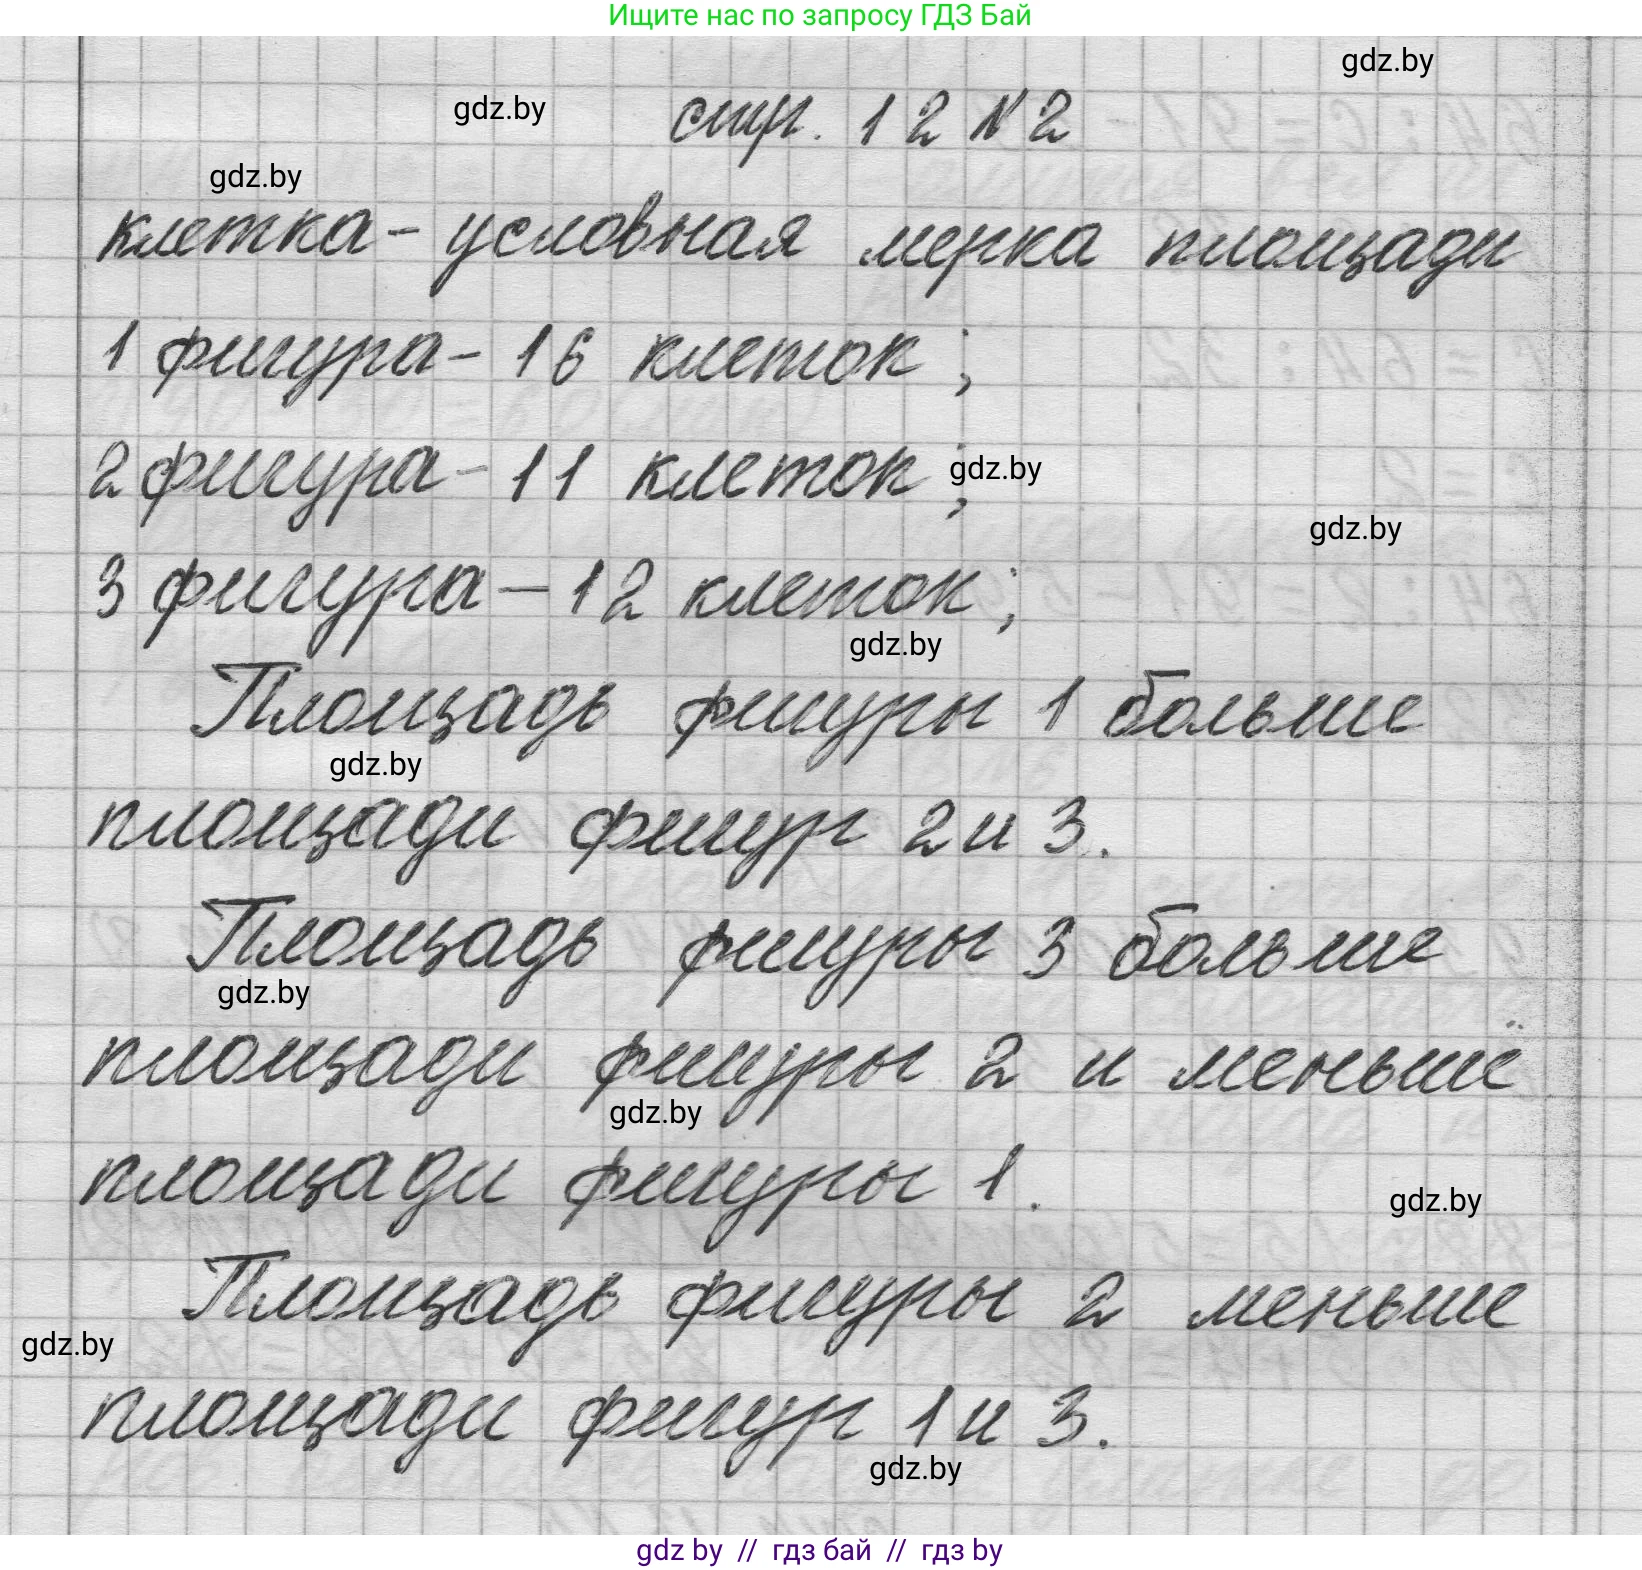 Ищите нас по запросу ГДЗ Бай
gdz.by
gdz.by
стр. 12 № 2
gdz.by
клетка - условная мерка площади
1 фигура - 16 клеток;
2 фигура - 11 клеток;
gdz.by
gdz.by
3 фигура - 12 клеток;
gdz.by
Площадь фигуры 1 больше
gdz.by
площади фигур 2 и 3.
Площадь фигуры 3 больше
gdz.by
площади фигуры 2 и меньше
gdz.by
площади фигуры 1.
gdz.by
Площадь фигуры 2 меньше
gdz.by
площади фигур 1 и 3.
gdz.by
gdz by // гдз бай // гдз by